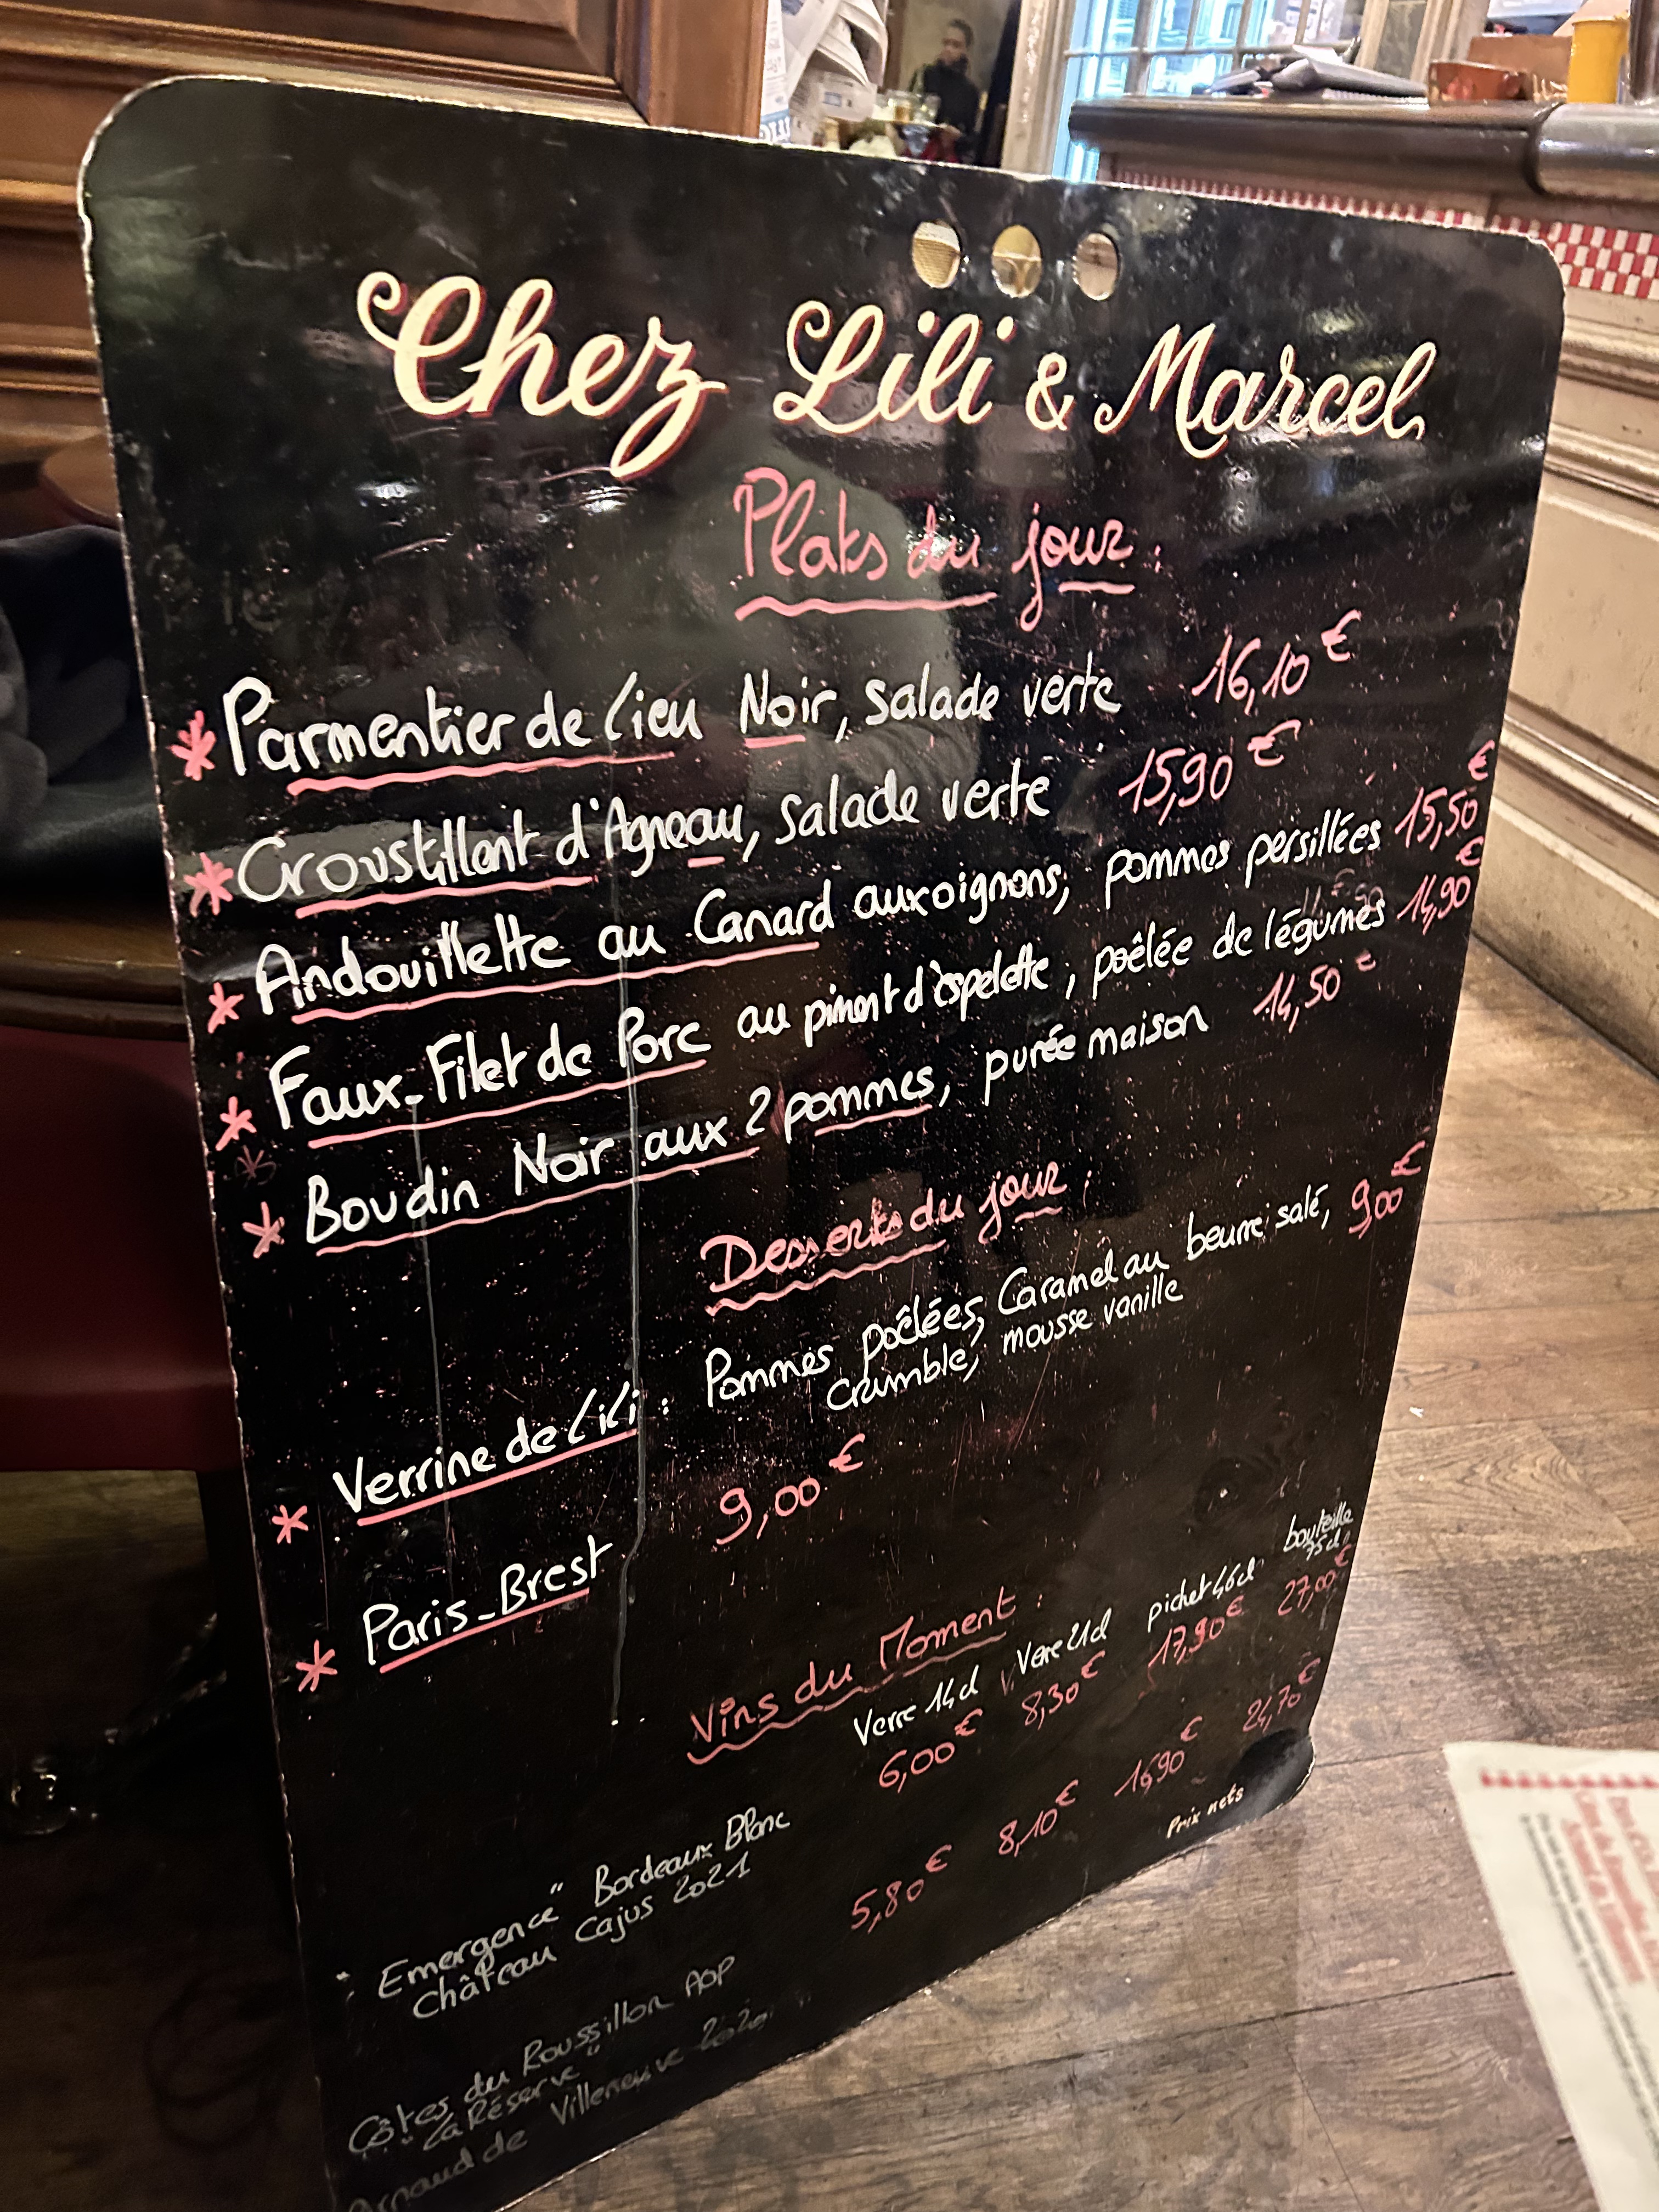 Chez Lili & Marcel
Plats du jour :
* Parmentier de lieu Noir, salade verte 16,10 €
* Croustillant d'Agneau, salade verte 15,90 €
* Andouillette au Canard aux oignons, pommes persillées 15,50 €
* Faux-Filet de Porc au piment d'espelette, poêlée de légumes 14,90 €
* Boudin Noir aux 2 pommes, purée maison 14,50 €
Desserts du jour :
* Verrine de Lili : Pommes poêlées, Caramel au beurre salé, 9,00 €
Crumble, mousse vanille
* Paris-Brest 9,00 €
Vins du Moment :
Verre 14cl Verre 21cl pichet 46cl bouteille 75cl
6,00 € 8,30 € 17,90 € 27,00 €
"Emergence" Bordeaux Blanc
Château Cajus 2021
5,80 € 8,10 € 16,90 € 24,70 €
Côtes du Roussillon AOP
"La Réserve"
Arnaud de Villeneuve 2020
Prix nets